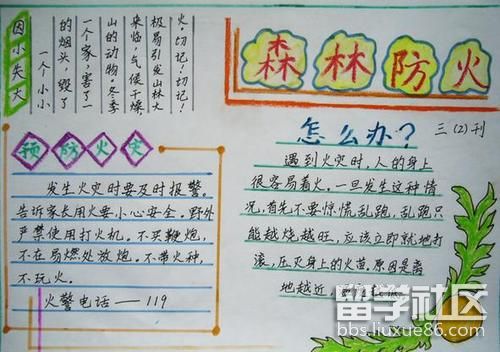 因小失大
一个小小
的烟头,毁了
一个家,害了一
山的动物。冬季
来临,气候干燥,
极易引发山林大
火,切记!切记!
森林防火
三(2)刊
预防火灾
发生火灾时要及时报警。
告诉家长用火要小心安全。野外
严禁使用打火机。不买鞭炮,
不在易燃处放炮。不带火种,
不玩火。
火警电话——119
怎么办?
遇到火灾时,人的身上
很容易着火。一旦发生这种情
况,首先不要惊慌乱跑,乱跑只
能越烧越旺,应该立即就地打
滚,压灭身上的火苗,原因是离
地越近
留学社区
bbs.liuxue86.com